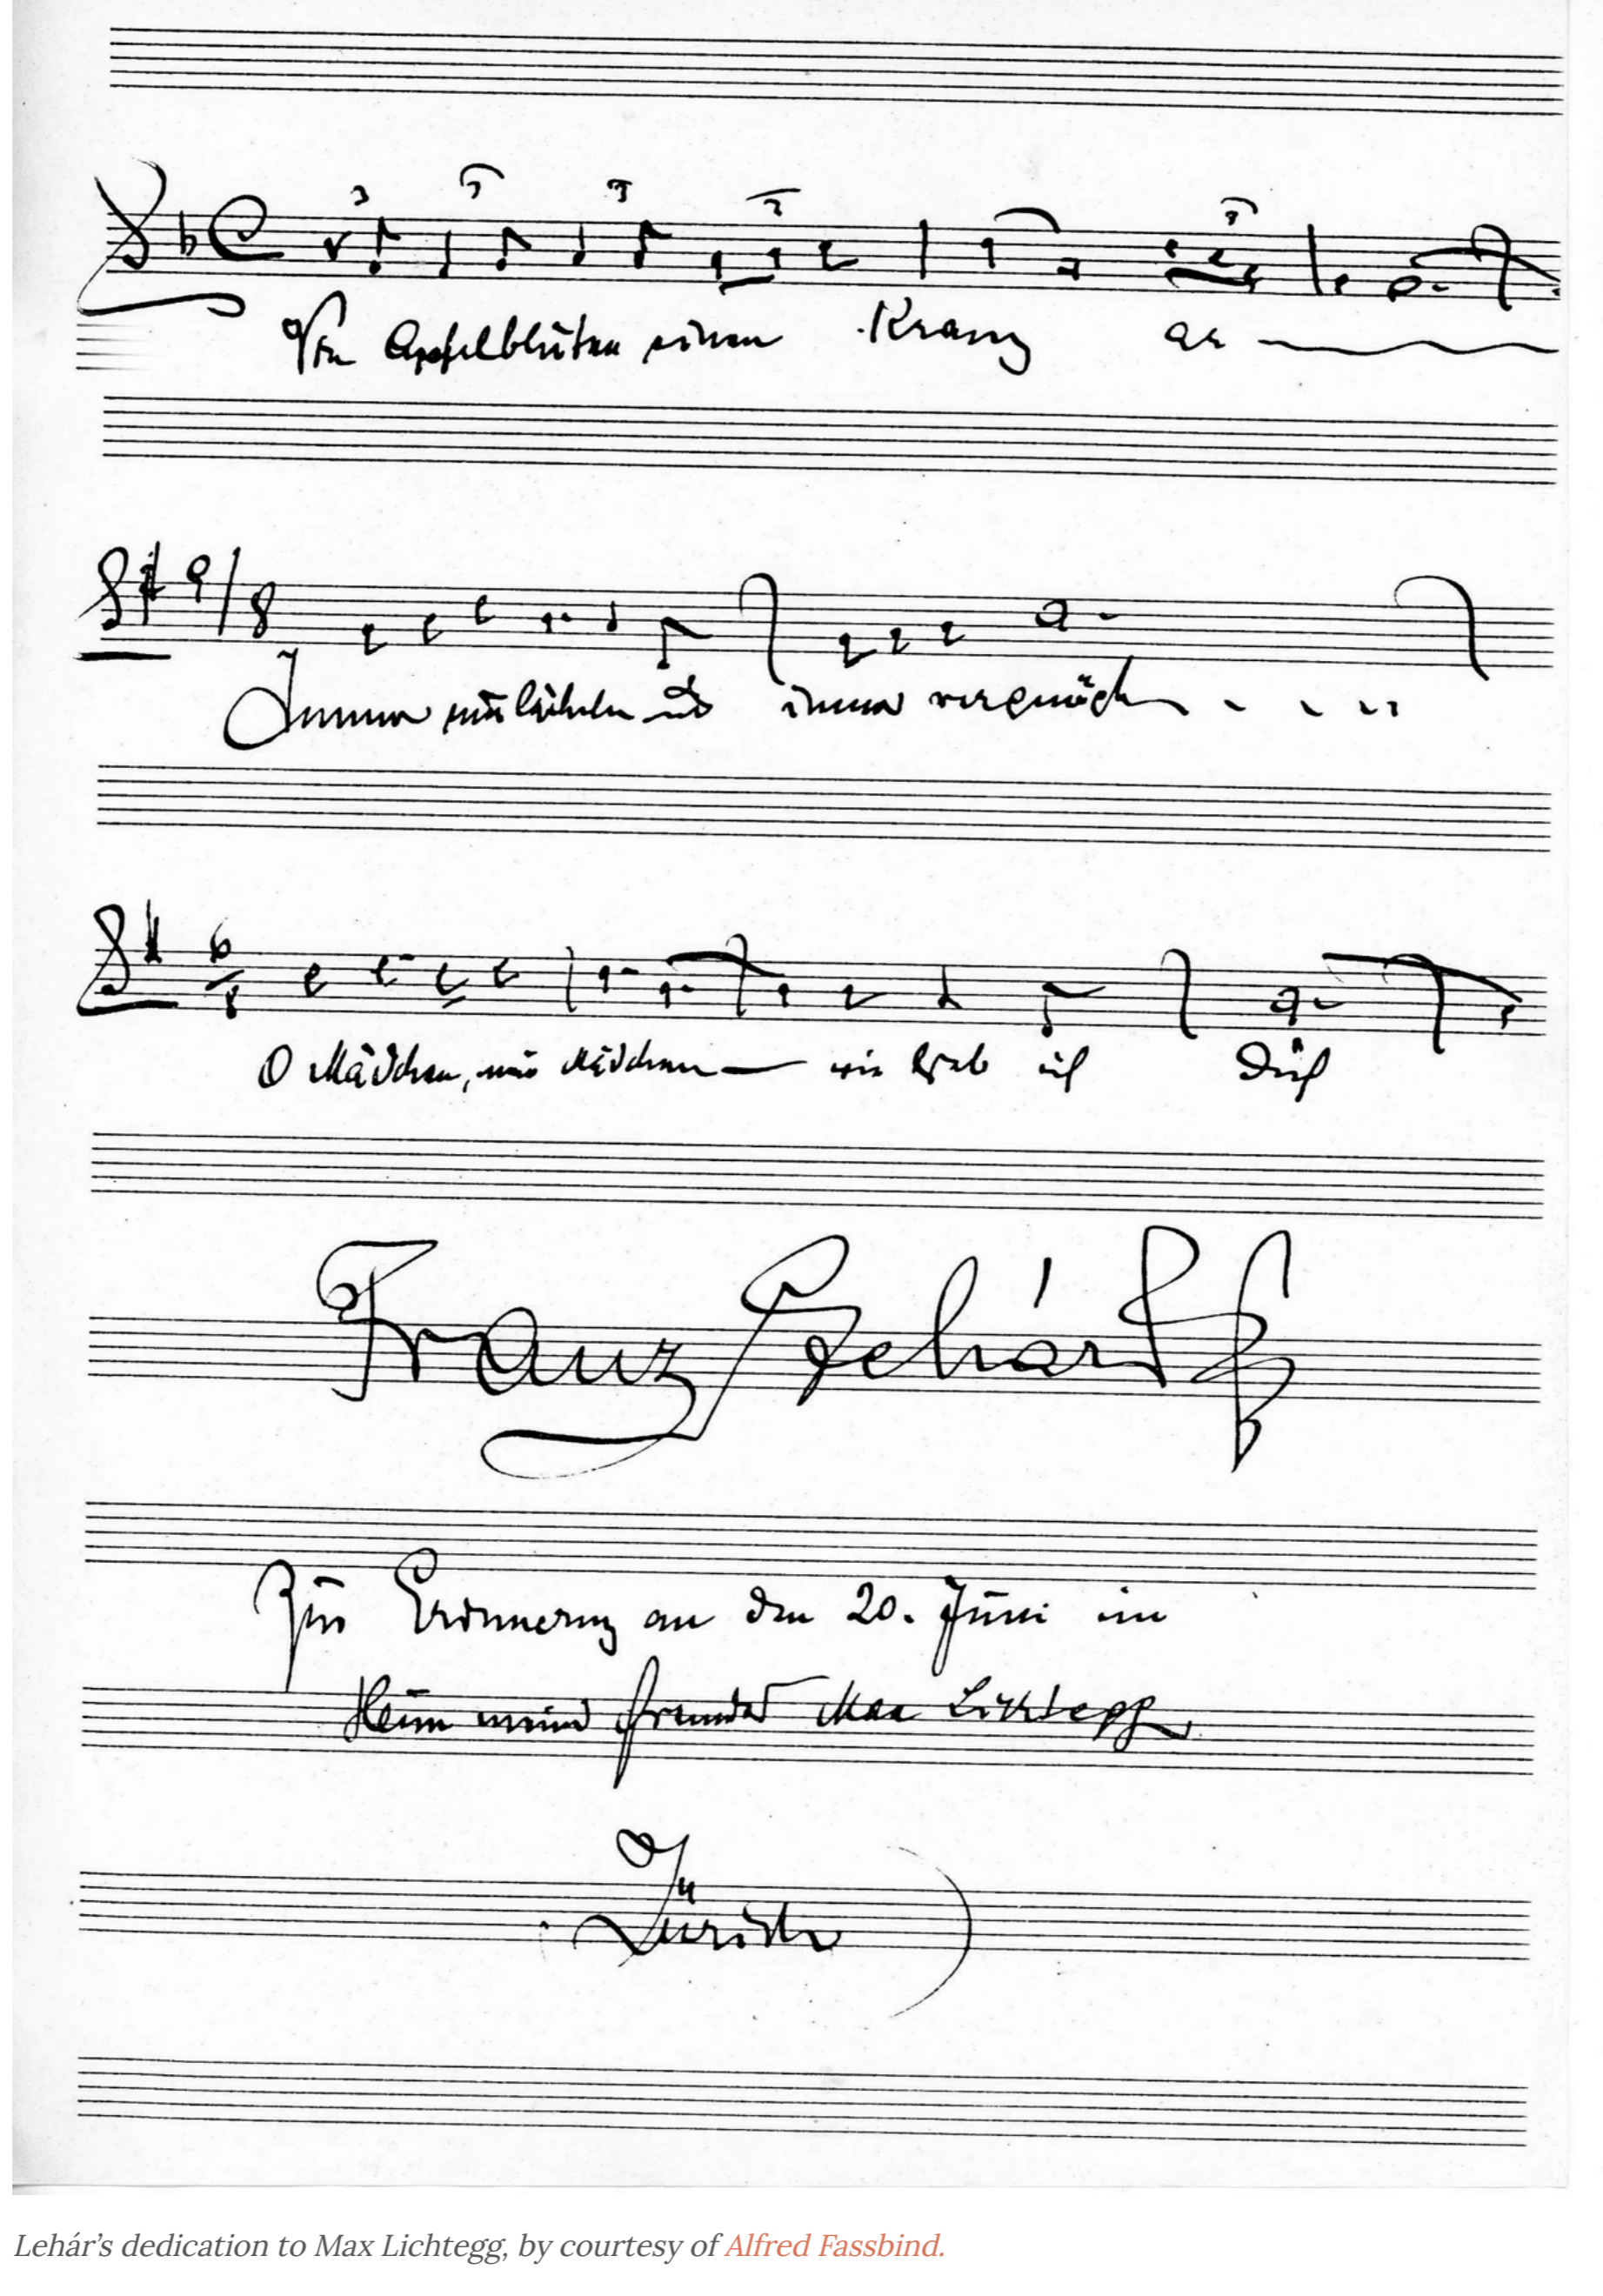 Von Apfelblüten einen Kranz ah
Immer nur lächeln und immer vergnügt
O Mädchen, mein Mädchen wie lieb ich Dich
Franz Lehár
Zur Erinnerung an den 20. Juni im
Heim meines Freundes Max Lichtegg
Zürich
Lehár’s dedication to Max Lichtegg, by courtesy of Alfred Fassbind.